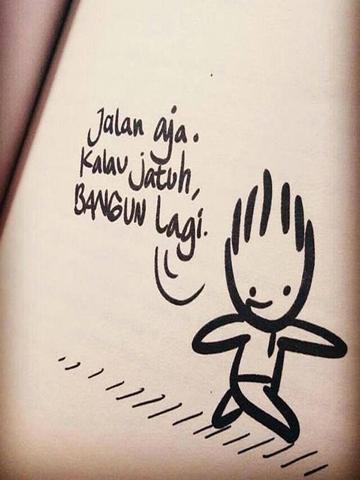 Jalan aja.
Kalau jatuh,
BANGUN lagi.